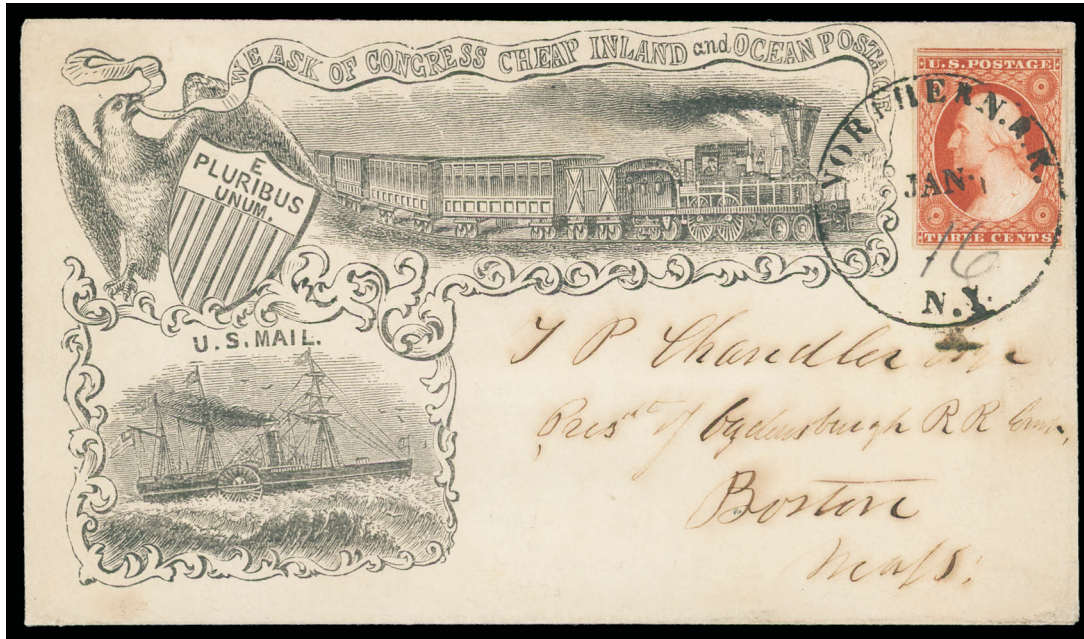 WE ASK OF CONGRESS CHEAP INLAND and OCEAN POSTAGE
E
PLURIBUS
UNUM.
U.S. MAIL.
U.S. POSTAGE
THREE CENTS
NORTHERN. R.R.
JAN.
16
N.Y.
T P Chandler Esqe
Prest of Ogdensburgh R R
Boston
Mass.